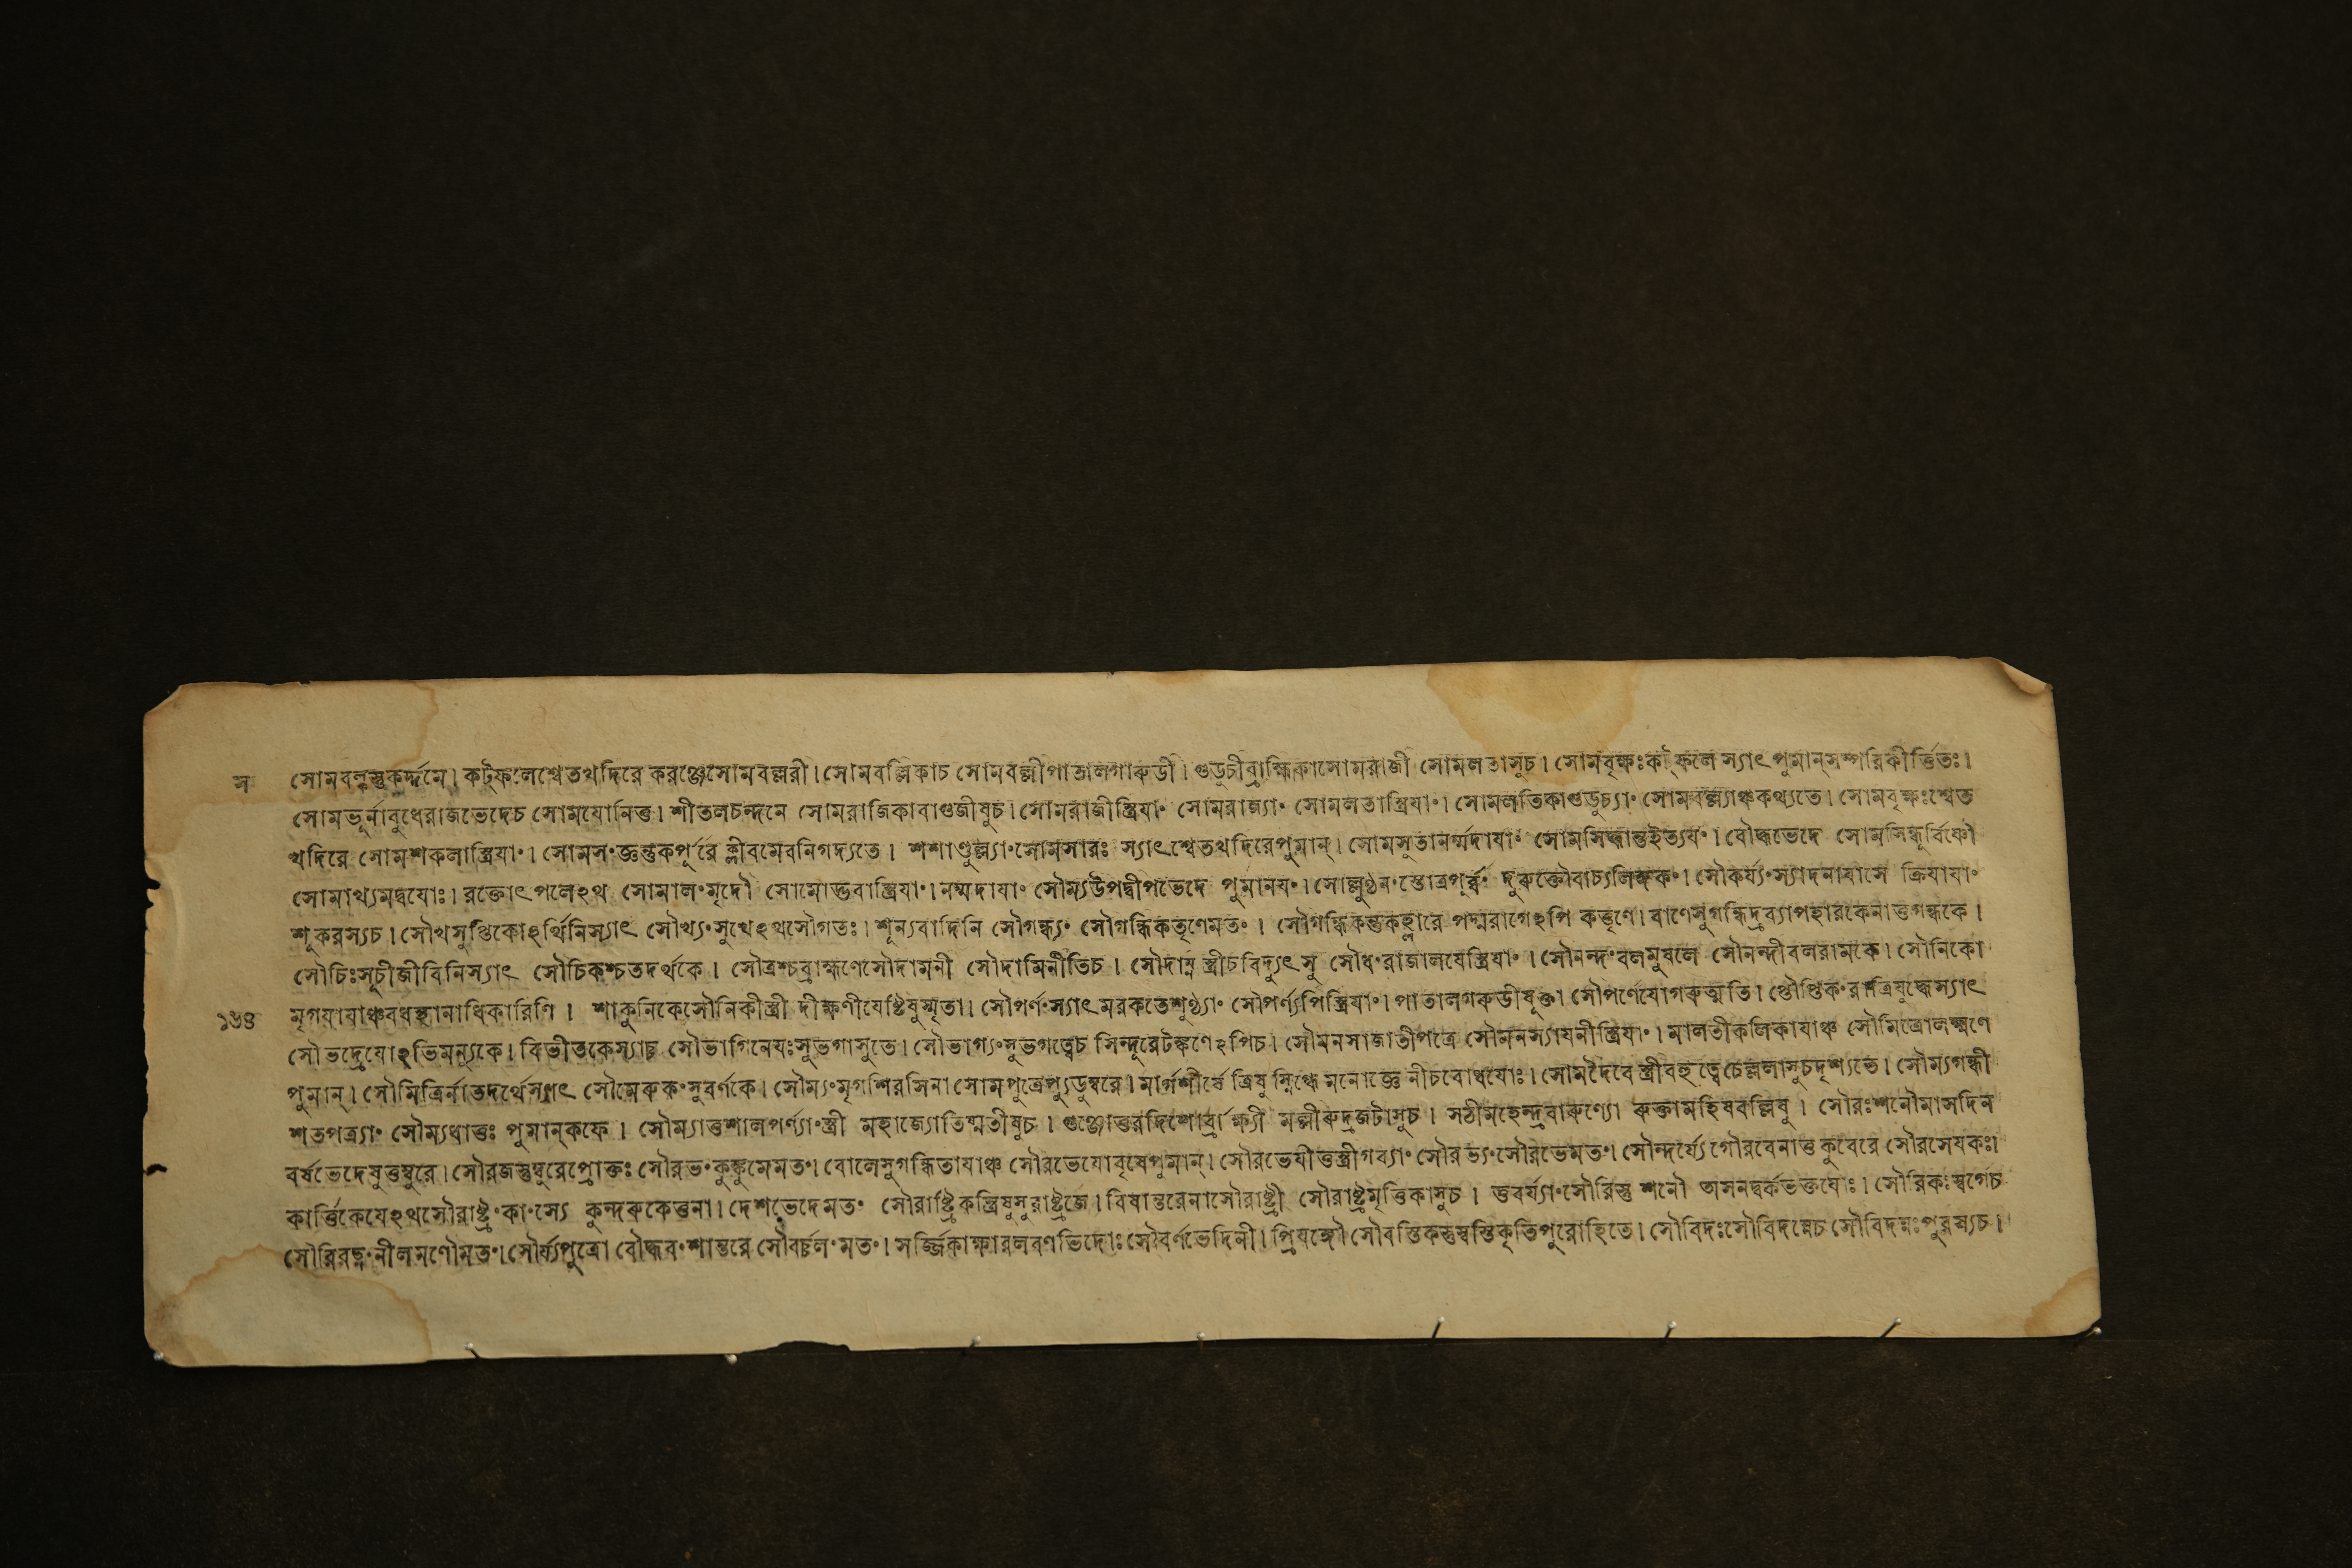 স সোমবল্কস্তুকর্দ্দমে। কট্ফলেশ্বেতখদিরে করঞ্জেসোমবল্লরী। সোমবল্লিকাচ সোমবল্লীপাতালগারুডী। গুডুচীব্রাহ্মিকাসোমরাজী সোমলতাসুচ। সোমবৃক্ষঃকট্ফলে স্যাৎ পুমান্সম্পরিকীর্ত্তিতঃ।
সোমভূর্নাবুধেরাজভেদেচ সোমযোনিত্তু। শীতলচন্দনে সোমরাজিকাবাগুজীষুচ। সোমরাজীস্ত্রিযাং সোমরাজ্যাং সোমলতাস্ত্রিযাং। সোমলতিকাগুডুচ্যাং সোমবল্ল্যাঞ্চকথ্যতে। সোমবৃক্ষঃশ্বেত
খদিরে সোমশকলাস্ত্রিযাং। সোমসংজ্ঞন্তুকর্পূরে ক্লীবমেবনিগদ্যতে। শশাণ্ডুল্যাংসোমসারঃ স্যাৎশ্বেতখদিরেপুমান্। সোমসুতানর্ম্মদাযাং সোমসিদ্ধান্তইত্যযং। বৌদ্ধভেদে সোমসিন্ধুর্বিষ্ণৌ
সোমাখ্যমদ্বযোঃ। রক্তোৎপলেঽথ সোমালংমৃদৌ সোমোদ্ভবাস্ত্রিযাং। নর্ম্মদাযাং সৌম্যউপদ্বীপভেদে পুমানযং। সোল্লুণ্ঠনংস্তোত্রপূর্ব্বং দুরুক্তৌবাচ্যলিঙ্গকং। সৌকর্য্যংস্যাদনাযাসে ক্রিযাযাং
শূকরস্যচ। সৌখসুপ্তিকোঽর্থিনিস্যাৎ সৌখ্যংসুখেঽথসৌগতঃ। শূন্যবাদিনি সৌগন্ধ্যং সৌগন্ধিকতৃণেমতং। সৌগন্ধিকন্তুকহ্লারে পদ্মরাগেঽপি কত্তৃণে। বাণেসুগন্ধিদ্রব্যাপহারকেনাত্তুগন্ধকে।
সৌচিঃসূচীজীবিনিস্যাৎ সৌচিকশ্চতদর্থকে। সৌত্রশ্চব্রাহ্মণেসৌদামনী সৌদামিনীতিচ। সৌদাম্নী স্ত্রীচবিদ্যুৎসু সৌধংরাজালযেস্ত্রিযাং। সৌনন্দংবলমুষলে সৌনন্দীবলরামকে। সৌনিকো
মৃগযাযাঞ্চবধস্থানাধিকারিণি। শাকুনিকেসৌনিকীস্ত্রী দীক্ষণীযেষ্টিষুস্মৃতা। সৌপর্ণংস্যাৎ মরকতেশুণ্ঠ্যাং সৌপর্ণ্যপিস্ত্রিযাং। পাতালগরুডীযুক্তা সৌপর্ণেযোগরুত্মতি। সৌপ্তিকংরাত্রিযুদ্ধেস্যাৎ
১৬৪
সৌভদ্রেযোঽভিমন্যুকে। বিভীতকেস্যাচ্চ সৌভাগিনেযঃসুভগাসুতে। সৌভাগ্যংসুভগত্বেচ সিন্দূরেটঙ্কণেঽপিচ। সৌমনসাজাতীপত্রে সৌমনস্যাযনীস্ত্রিযাং। মালতীকলিকাযাঞ্চ সৌমিত্রোলক্ষ্মণে
পুমান্। সৌমিত্রির্নাতদর্থেস্যাৎ সৌমেরুকংসুবর্ণকে। সৌম্যংমৃগশিরসিনা সোমপুত্রেপ্যুডুম্বরে। মার্গশীর্ষে ত্রিষুস্নিগ্ধে মনোজ্ঞে নীচবোধযোঃ। সোমদৈবে স্ত্রীবহুত্বেচেল্ললাসুচদৃশ্যতে। সৌম্যগন্ধী
শতপত্র্যাং সৌম্যধাতুঃ পুমান্কফে। সৌম্যাত্তুশালপর্ণ্যাংস্ত্রী মহাজ্যোতিষ্মতীষুচ। গুঞ্জোত্তরদিশোর্ব্রাহ্ম্যী মল্লীরুদ্রজটাসুচ। সঠীমহেন্দ্রবারুণ্যো রুক্তামহিষবল্লিষু। সৌরঃশনৌমাসদিন
বর্ষভেদেষুতুম্বুরে। সৌরজস্তুম্বুরেপ্রোক্তঃ সৌরভংকুঙ্কুমেমতং। বোলেসুগন্ধিতাযাঞ্চ সৌরভেযোবৃষেপুমান্। সৌরভেযীত্তুস্ত্রীগব্যাং সৌরভ্যংসৌরভেমতং। সৌন্দর্য্যেগৌরবেনাত্তু কুবেরে সৌরসেযকঃ।
কার্ত্তিকেযেঽথসৌরাষ্ট্রংকাংস্যে কুন্দরুকেত্তুনা। দেশভেদেমতং সৌরাষ্ট্রিকন্ত্রিষুসুরাষ্ট্রজে। বিষান্তরেনাসৌরাষ্ট্রী সৌরাষ্ট্রমৃত্তিকাসুচ। তুবর্য্যাংসৌরিস্তু শনৌ অসনদ্বর্কভক্তযোঃ। সৌরিকঃস্বর্গেচ
সৌরিরত্নংনীলমণৌমতং। সৌর্য্যপুত্রো বৌদ্ধবংশান্তরে সৌবর্চ্চলংমতং। সর্জ্জিকাক্ষারলবণভিদোঃসৌবর্ণভেদিনী। প্রিযঙ্গৌ সৌবস্তিকস্তুস্বস্তিকৃতিপুরোহিতে। সৌবিদঃসৌবিদল্লেচ সৌবিদল্লঃপুরস্যচ।